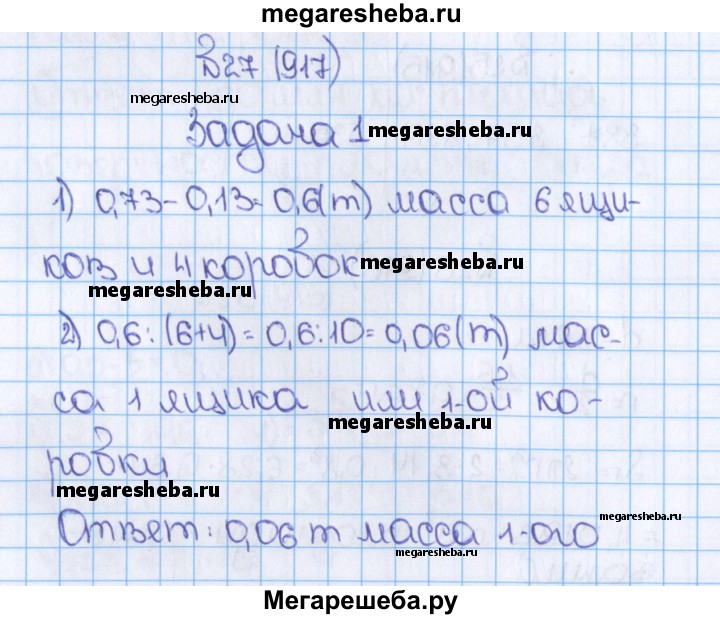 megaresheba.ru
№27 (917)
megaresheba.ru
Задача 1 megaresheba.ru
1) 0,73-0,13=0,6(т) масса 6 ящи-
ков и 4 коробок megaresheba.ru
megaresheba.ru
2) 0,6:(6+4)=0,6:10=0,06(т) мас-
са 1 ящика или 1-ой ко-
megaresheba.ru
ровки
megaresheba.ru
Ответ: 0,06 т масса 1-ого
megaresheba.ru
megaresheba.ru
Мегарешеба.ру